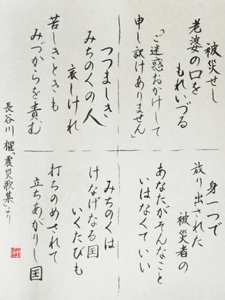 被災せし
老婆の口を
もれいづる
「ご迷惑おかけして
申し訳けありません」
つつましき
みちのくの人
哀しけれ
苦しきときも
みづからを責む
身一つで
放り出された
被災者の
あなたがそんなこと
いはなくていい
みちのくは
けなげなる国
いくたびも
打ちのめされて
立ちあがりし国
長谷川櫂「震災歌集」より